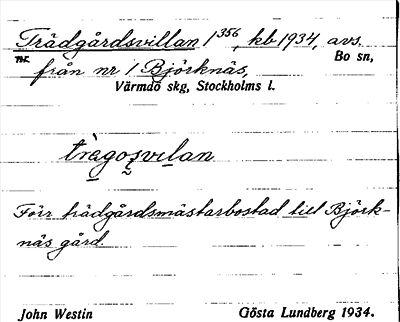 Trädgårdsvillan 1³⁵⁶, kb 1934, avs.
nr. från nr 1 Björknäs, Bo sn,
Värmdö skg, Stockholms l.
trägos̨vilan
Förr trädgårdsmästarbostad till Björk-
näs gård.
John Westin Gösta Lundberg 1934.